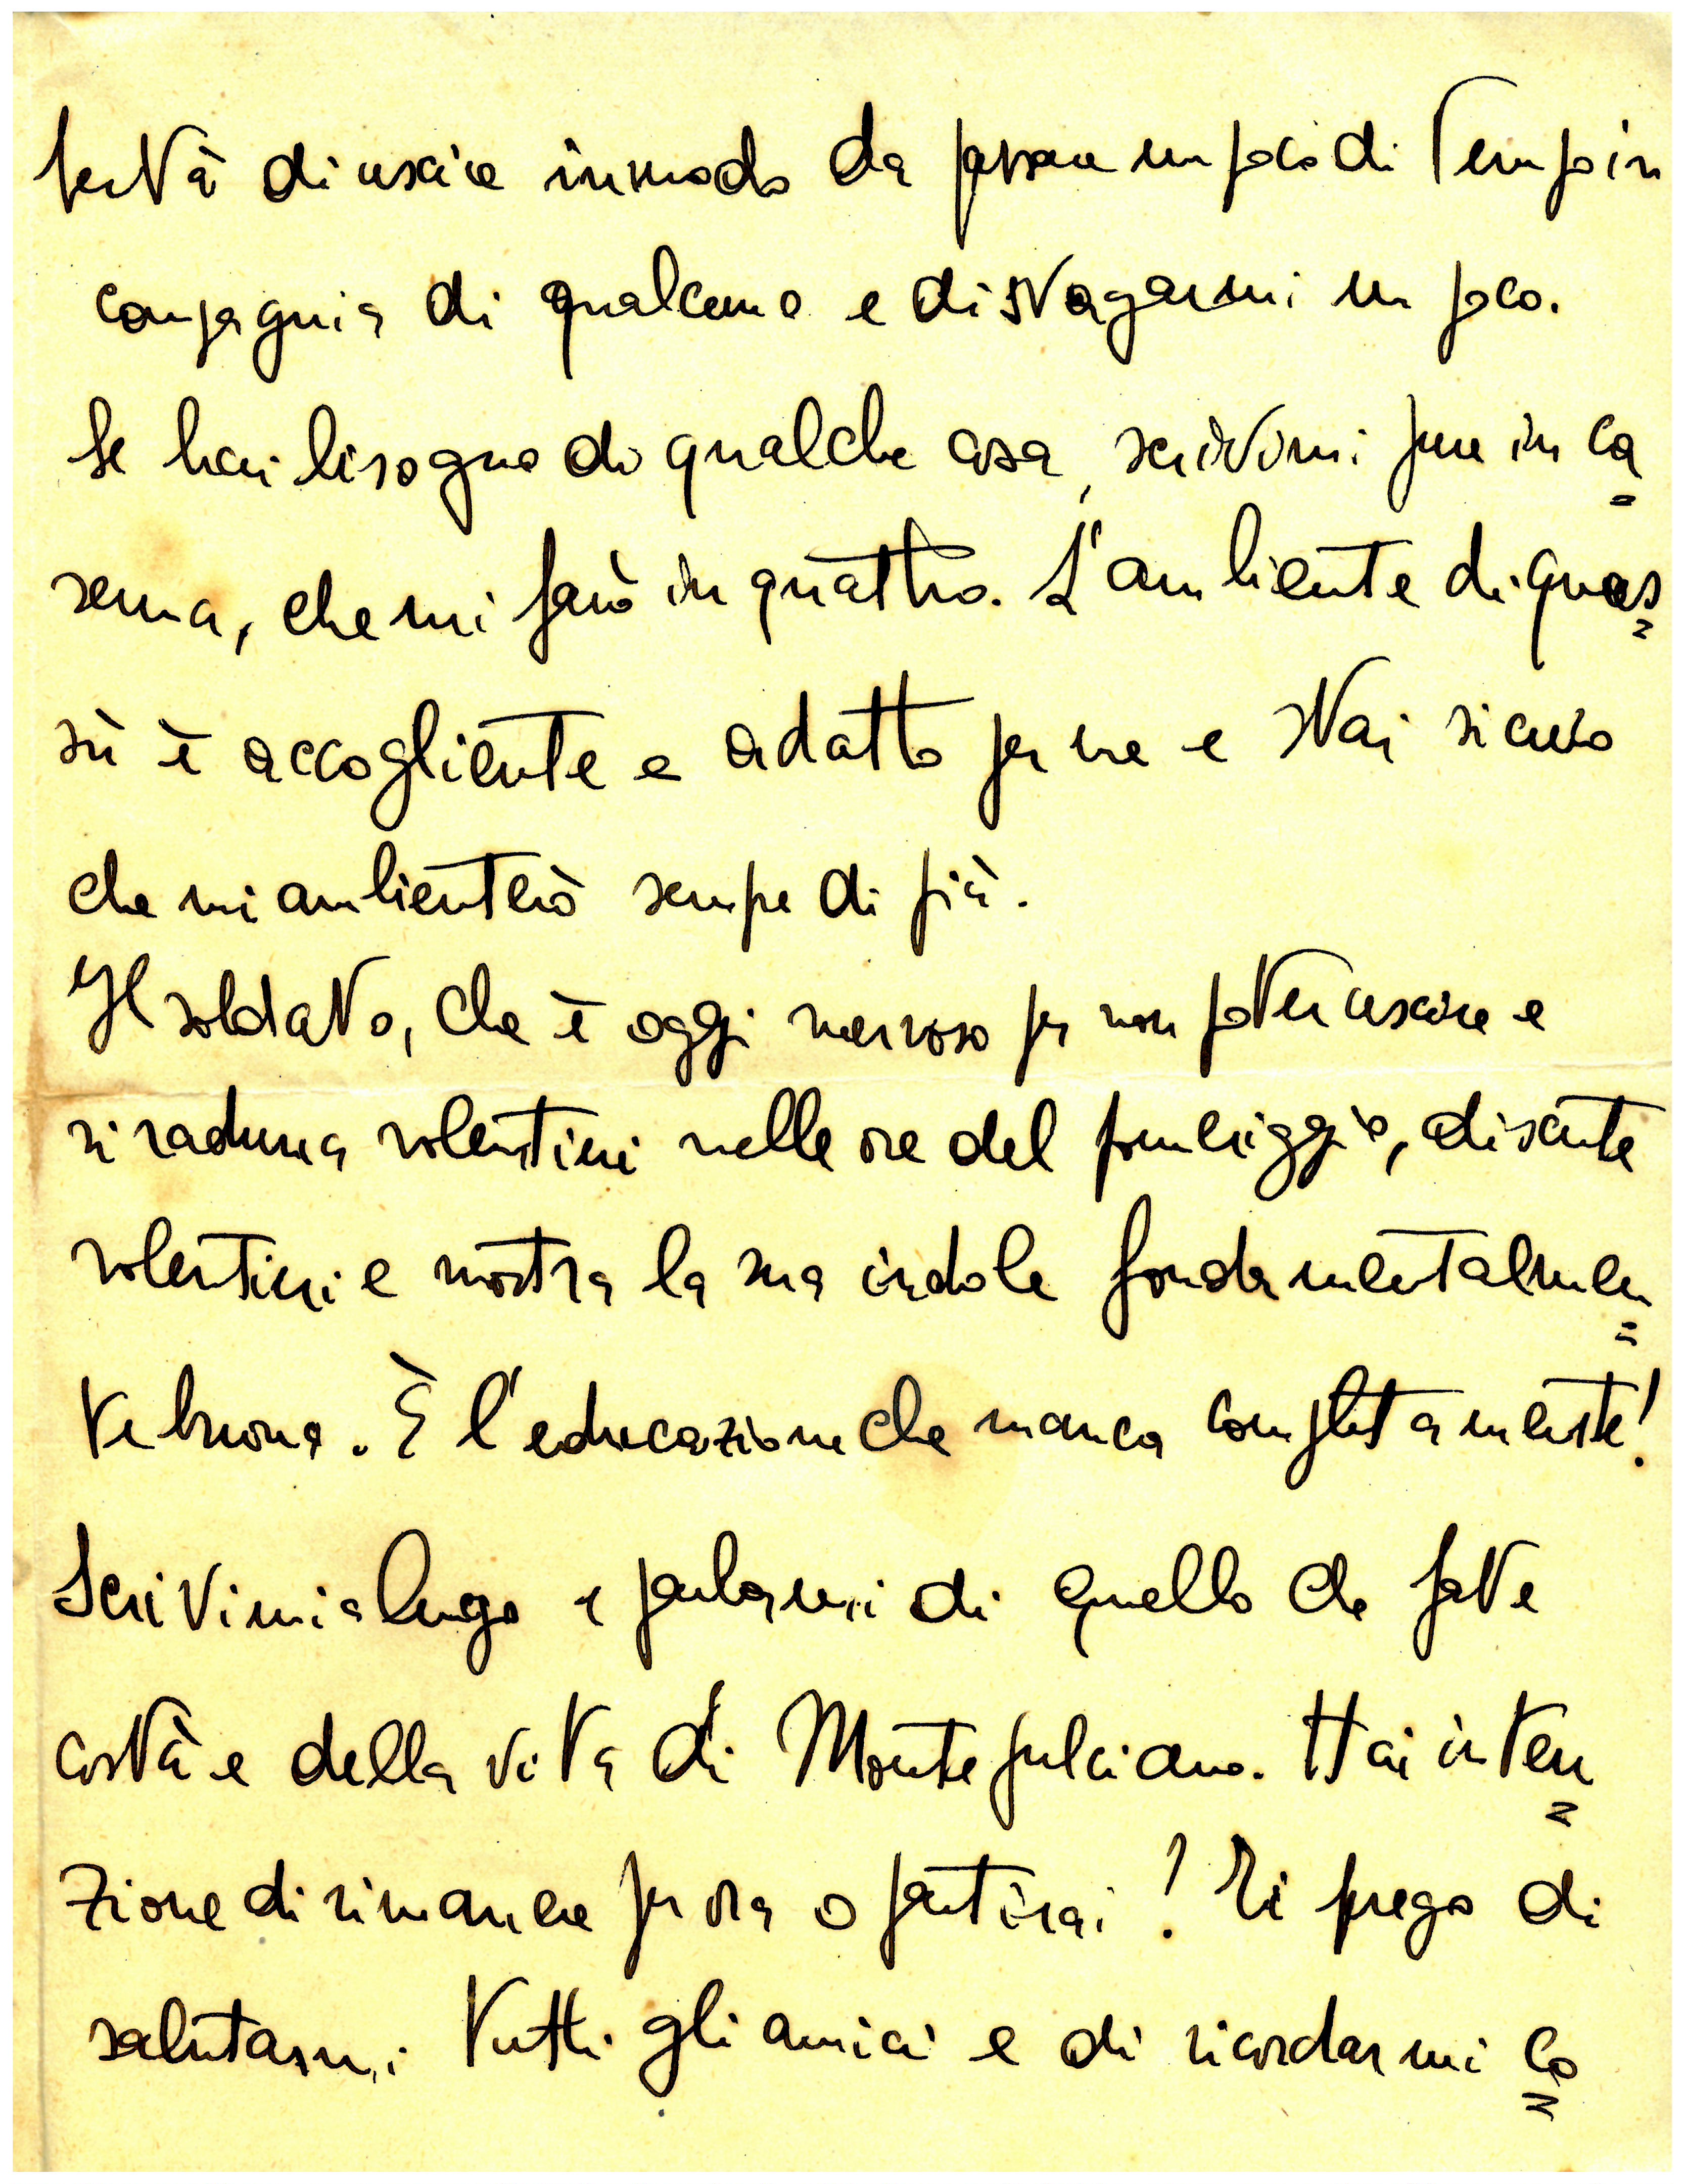 bertà di uscire in modo da passare un poco di tempo in
compagnia di qualcuno e di svagarmi un poco.
Se hai bisogno di qualche cosa, scrivimi pure in ca=
serma, che mi farò in quattro. L'ambiente di quas=
sù è accogliente e adatto per me e stai sicuro
che mi ambienterò sempre di più.
Il soldato, che è oggi nervoso per non poter uscire e
si raduna volentieri nelle ore del pomeriggio, discute
volentieri e mostra la sua indole fondamentalmen=
te buona. È l'educazione che manca completamente!
Scrivimi a lungo e parlami di quello che fate
costà e della vita di Montepulciano. Hai inten=
zione di rimanere per ora o partirai? Ti prego di
salutarmi tutti gli amici e di ricordarmi co=